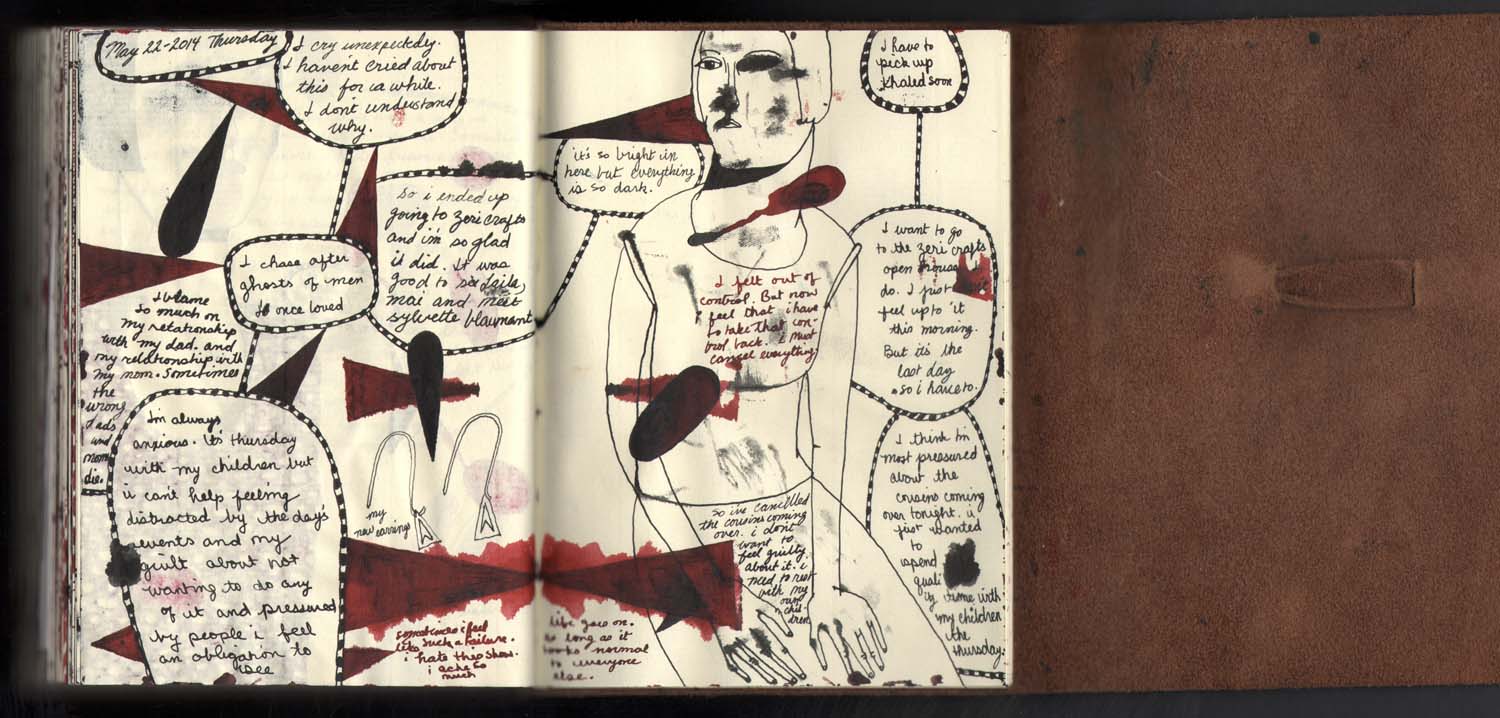 May 22-2014 Thursday
I cry unexpectedly.
I haven't cried about
this for a while.
I don't understand
why.
so i ended up
going to zeri crafts
and i'm so glad
i did. It was
good to see Laila,
mai and meet
sylvette blaumont
I chase after
ghosts of men
i once loved
I blame
so much on
my relationship
with my dad. and
my relationship with
my mom. Sometimes
the
wrong
dads
and
moms
die.
I'm always
anxious. It's thursday
with my children but
i can't help feeling
distracted by the day's
events and my
guilt about not
wanting to do any
of it and pressured
by people i feel
an obligation to
see
my
new earrings
sometimes i feel
like such a failure.
i hate this show.
i ache so
much
it's so bright in
here but everything
is so dark.
I felt out of
control. But now
feel that i have
to take that con-
trol back. i must
cancel everything
so i've cancelled
the cousins coming
over. i don't
want to
feel guilty
about it. i
need to rest
with my
own
chil-
dren
life goes on.
as long as it
looks normal
to everyone
else.
I have to
pick up
Khaled soon
I want to go
to the zeri crafts
open house
do. I just
feel up to it
this morning.
But it's the
last day
so i have to.
I think I'm
most pressured
about the
cousins coming
over tonight. i
just wanted
to
spend
quali
ty time with
my children
the
thursday.